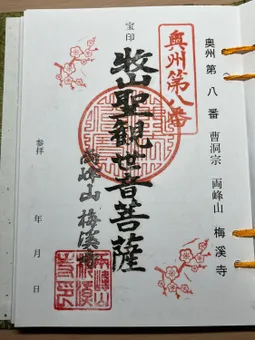 奥州第八番 曹洞宗 両峰山 梅溪寺
奥州第八番
宝印
牧山聖観世音菩薩
両峰山 梅溪寺
参拝 年 月 日